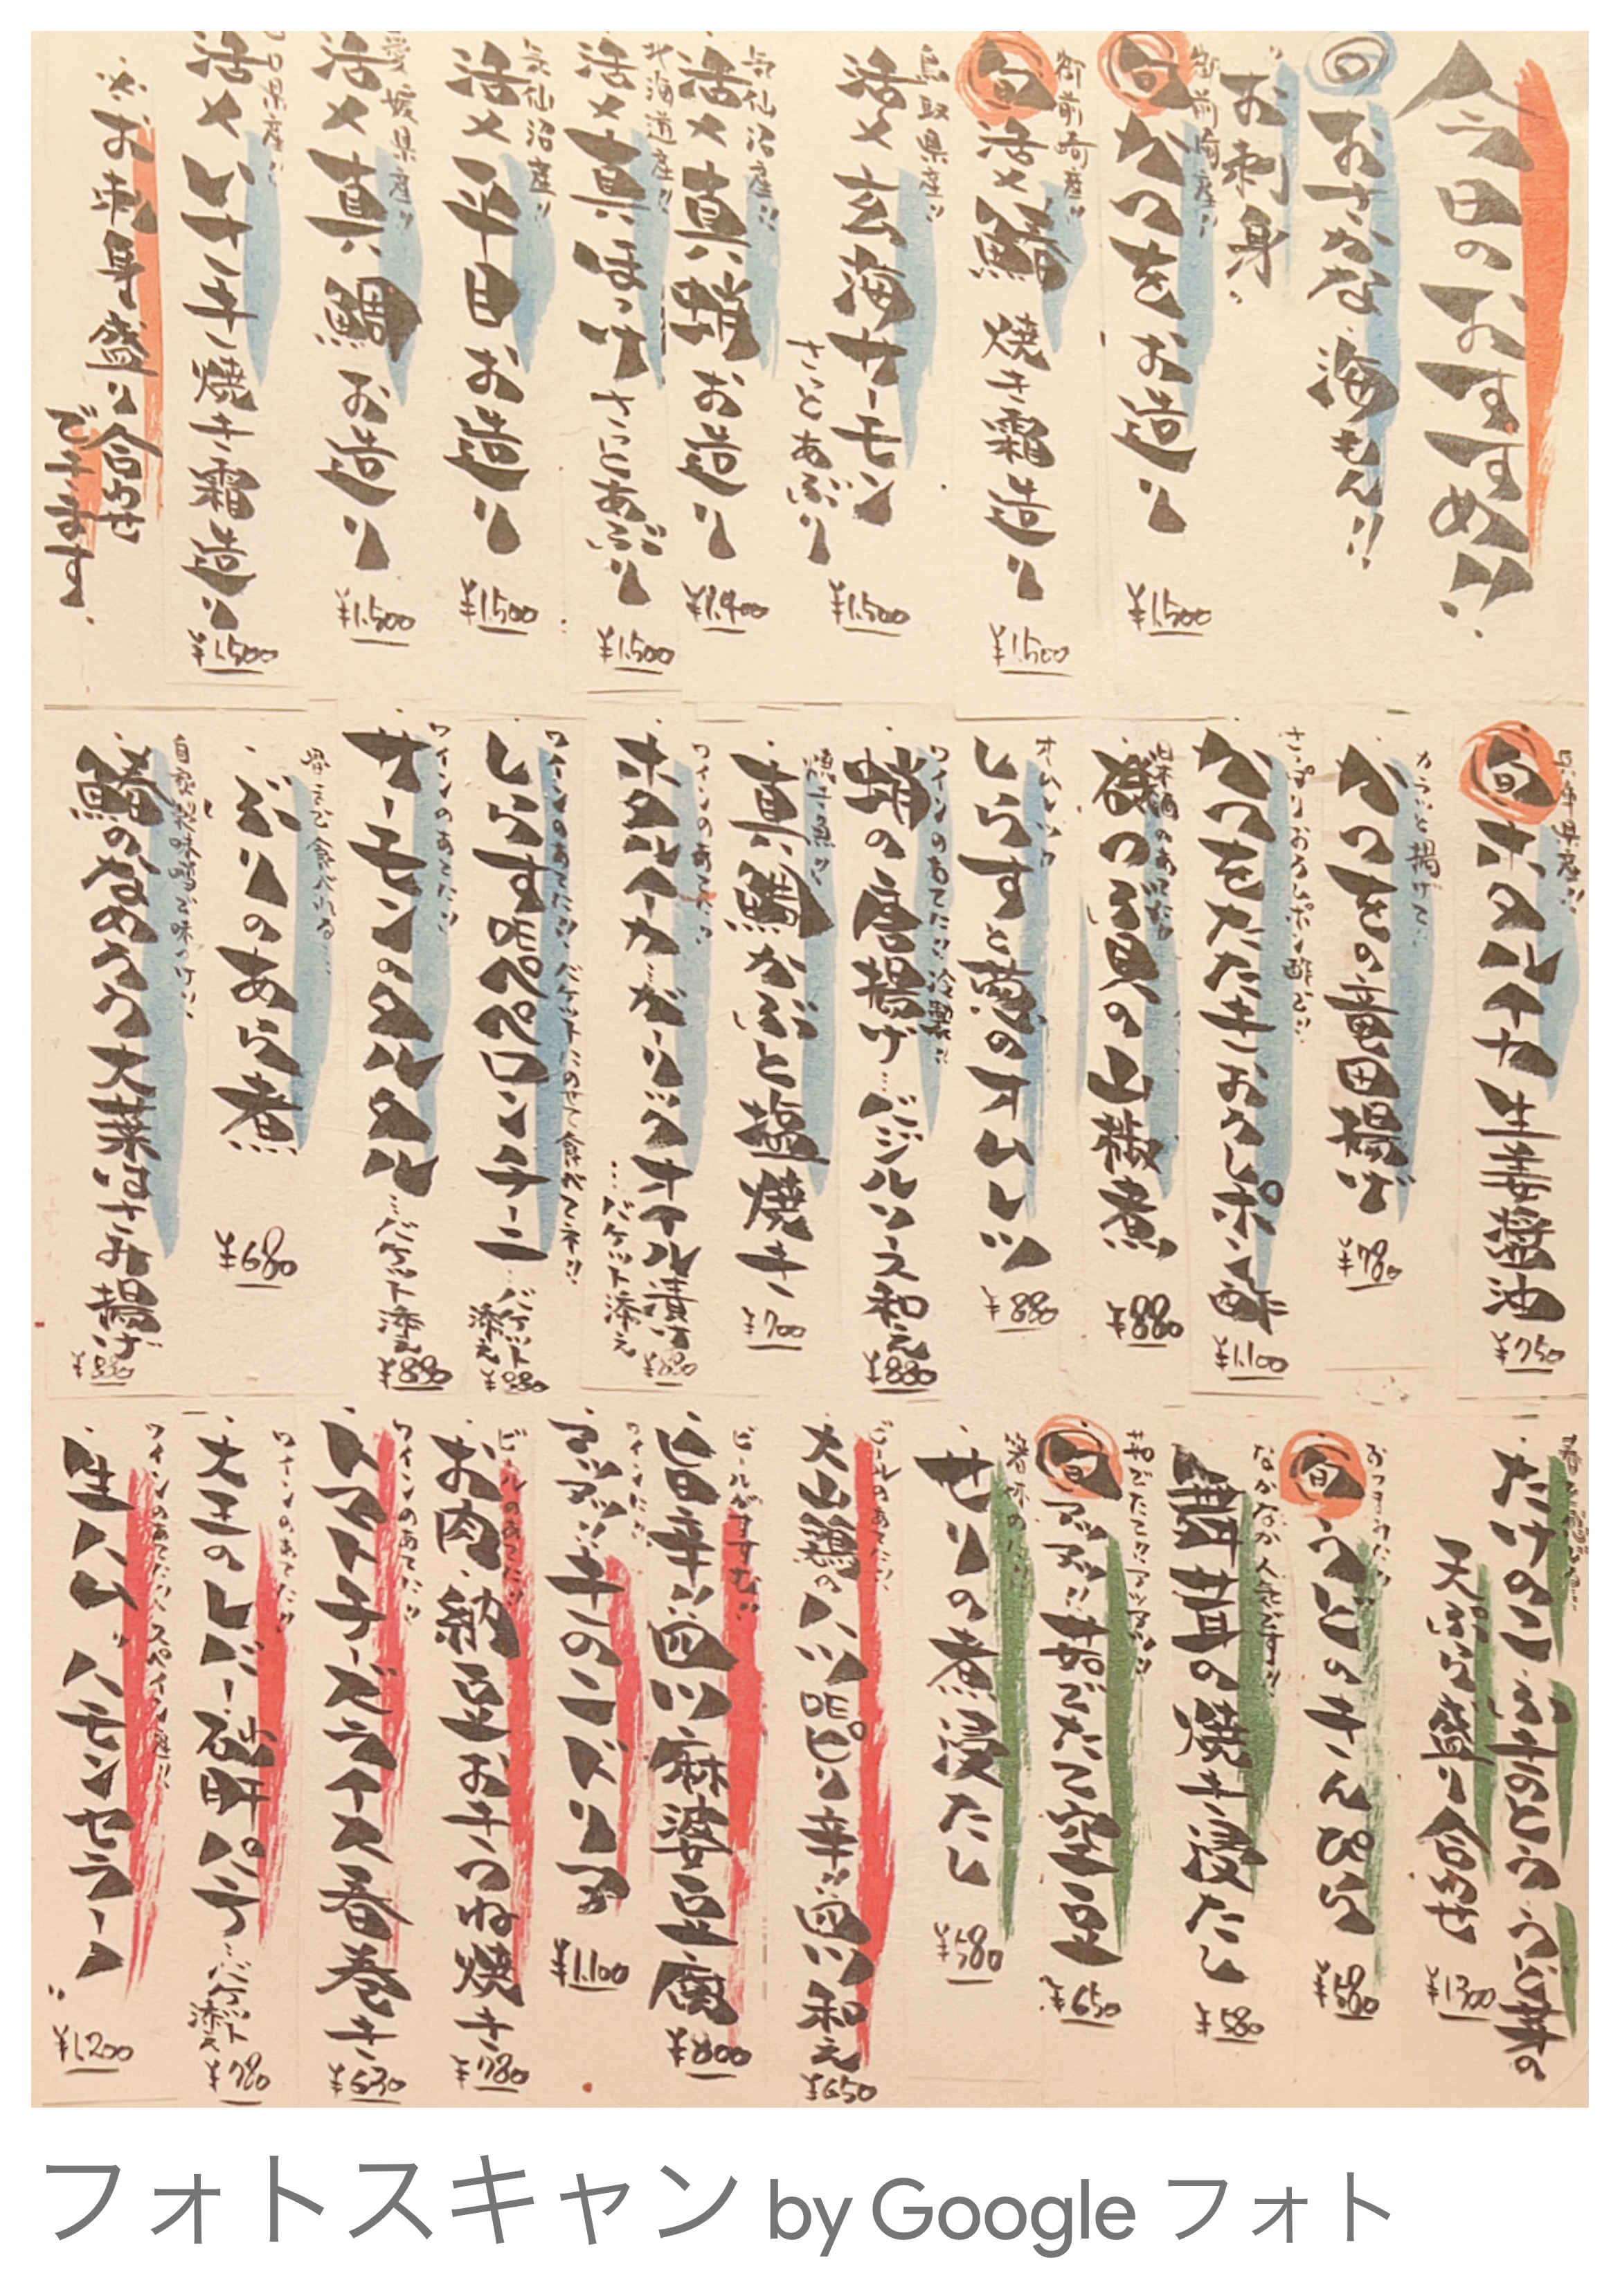 今日のおすすめ!!
旬のおさかな 海もん!!
お刺身
御前崎産!!
旬 かつをお造り ¥1,500
御前崎産!!
旬 活〆鰆 焼き霜造り ¥1,500
鳥取県産!!
活〆玄海サーモン
さっとあぶり ¥1,500
気仙沼産!!
活〆真蛸お造り ¥1,400
北海道産!!
活〆真ほっけ さっとあぶり ¥1,500
気仙沼産!!
活〆平目お造り ¥1,500
愛媛県産!!
活〆真鯛お造り ¥1,500
口県産!!
活〆いさき焼き霜造り ¥1,500
※お刺身盛り合わせ
できます
兵庫県産!!
旬 ホタルイカ生姜醤油 ¥750
カラッと揚げて
かつをの竜田揚げ ¥780
さっぱりおろしポン酢で!!
かつをたたきおろしポン酢 ¥1,100
日本酒のあてに!!
磯つぶ貝の山椒煮 ¥880
オムレツ!!
しらすと葱のオムレツ ¥880
ワインのあてに!!冷製!!
蛸の唐揚げ…バジルソース和え ¥880
焼き魚!!
真鯛かぶと塩焼き ¥700
ワインのあてに!!
ホタルイカ…ガーリックオイル漬け
…バケット添え ¥880
ワインのあてに!!バケットにのせて食べてネ!!
しらすのペペロンチーニ…バケット添え ¥880
ワインのあてに!!
サーモンのタルタル…バケット添え ¥880
骨まで食べれる…
ぶりのあら煮 ¥680
自家製味噌で味つけ!!
鰆のなめろう大葉はさみ揚げ ¥880
たけのこ ふきのとう うど芽の
天ぷら盛り合わせ ¥1,300
おつまみに!!
旬 うどのきんぴら ¥580
なかなか人気です!!
舞茸の焼き浸たし ¥580
茹でたて!!アツアツ!!
旬 アツアツ!!茹でたて空豆 ¥650
春味の!!
せりの煮浸たし ¥580
ビールのあてに!!
大山鶏のハツのピリ辛!!四川和え ¥650
ビールがすすむ!!
旨辛!!四川麻婆豆腐 ¥800
ワインに!!
アツアツ!!きのこドリア ¥1,100
ビールのあてに!!
お肉、納豆おきつね焼き ¥780
ワインのあてに!!
トマトチーズライス春巻き ¥630
ワインのあてに!!
大王のレバー 砂肝パテ…バケット添え ¥780
ワインのあてに!!スペイン産!!
生ハム ハモンセラーノ ¥1,200
フォトスキャン by Google フォト